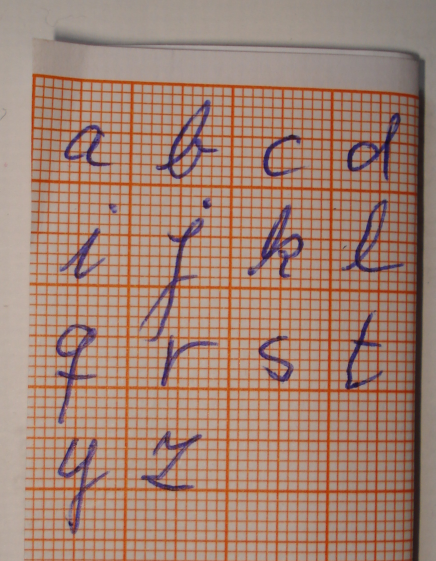 a b c d
i j k l
q r s t
y z